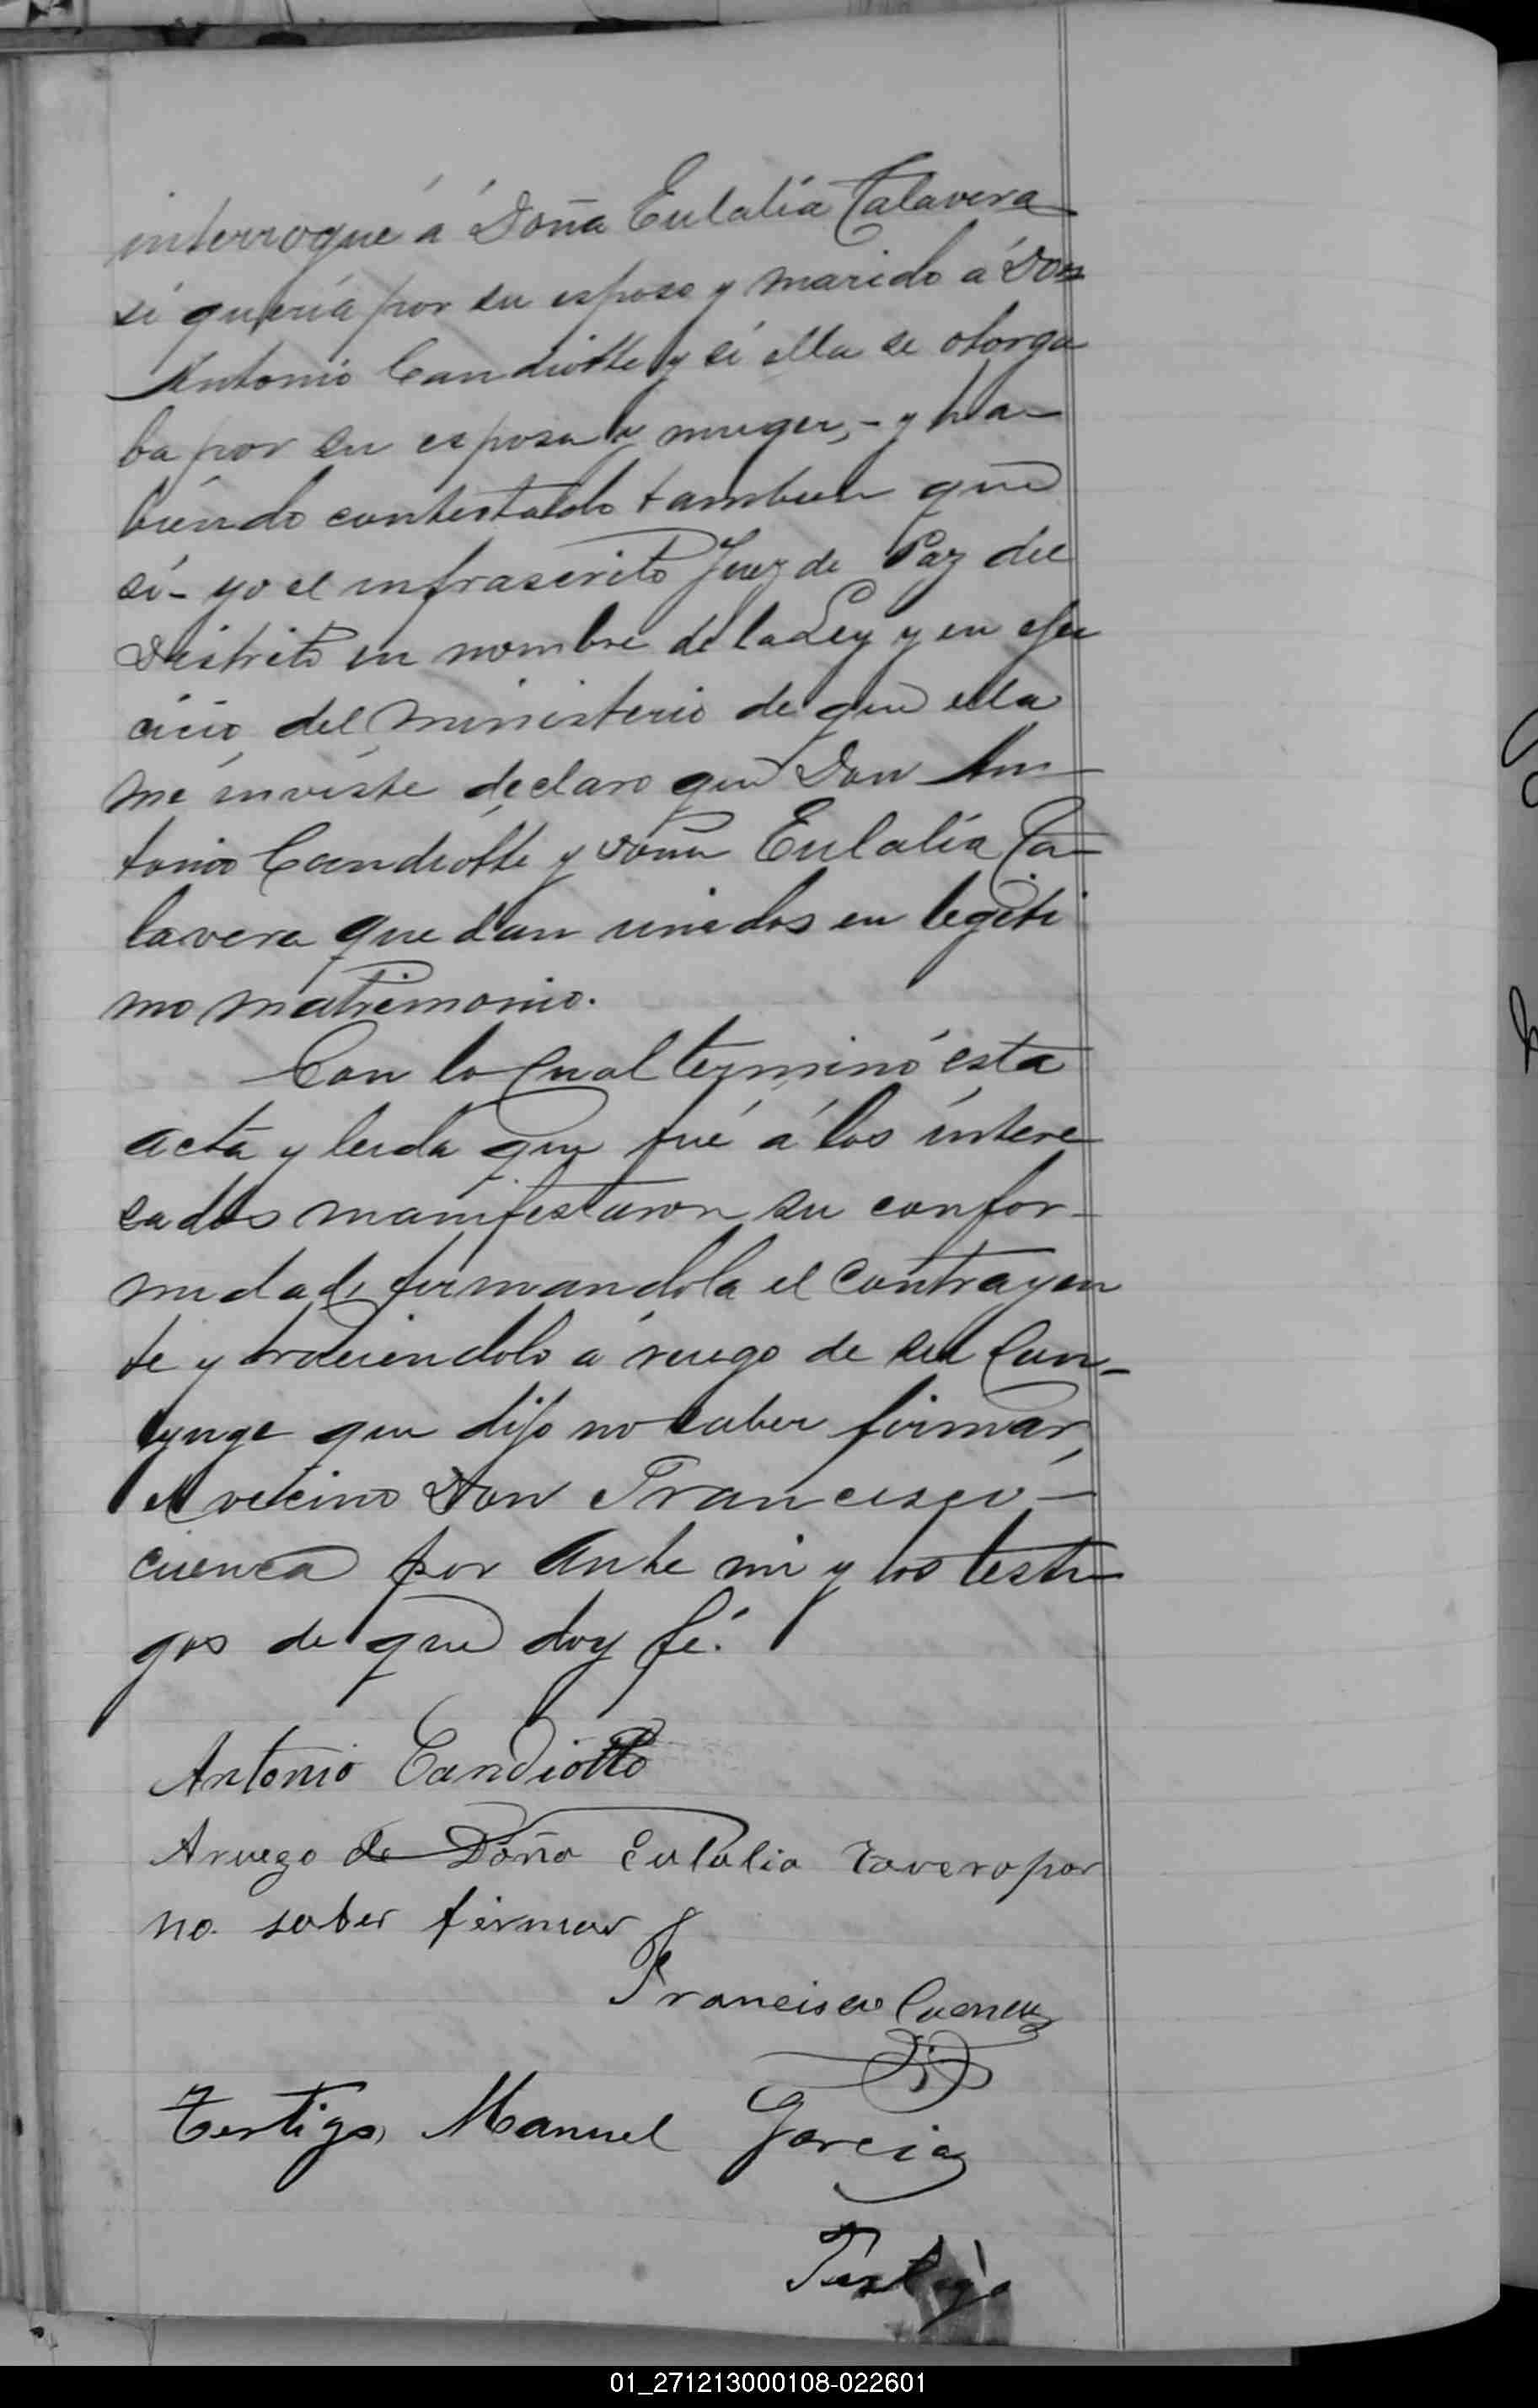 interrogué á Doña Eulalia Talavera
si queria por su esposo y marido á Don
Antonio Candiotte y si ella se otorga
ba por su esposa y muger, - y ha-
biendo contestado tambien que
si - yo el infrascrito Juez de Paz del
Distrito en nombre de la Ley y en eger
cicio del ministerio de que ella
me inviste declaro que Don An-
tonio Candiotte y doña Eulalia Ta-
lavera quedan unidos en legiti
mo matrimonio.
Con lo Cual terminó esta
acta y leida que fué á los intere
sados manifestaron su confor-
midad, firmandola el Contrayen
te y haciendolo á ruego de su Con-
yuge que dijo no saber firmar,
el vecino Don Francisco -
Cuenca por ante mi y los testi-
gos de que doy fé.
Antonio Candiotto
A ruego de Doña Eulalia Tavera por
no saber firmar
Francisco Cuenca
Testigo, Manuel Garcia
Testigo
01_271213000108-022601